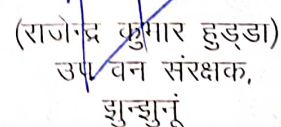 (राजेन्द्र कुमार हुड्डा)
उप वन संरक्षक,
झुन्झुनूं